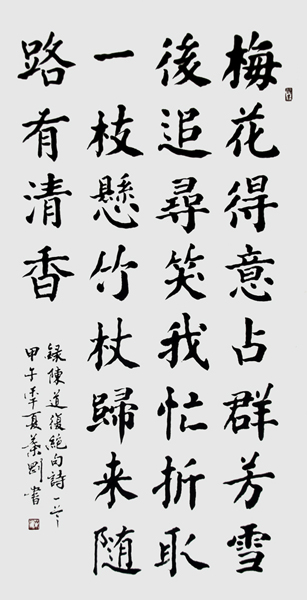 梅花得意占群芳雪
後追尋笑我忙折取
一枝懸竹杖歸来随
路有清香
録陳道復絕句詩一首
甲午年夏葉剛書